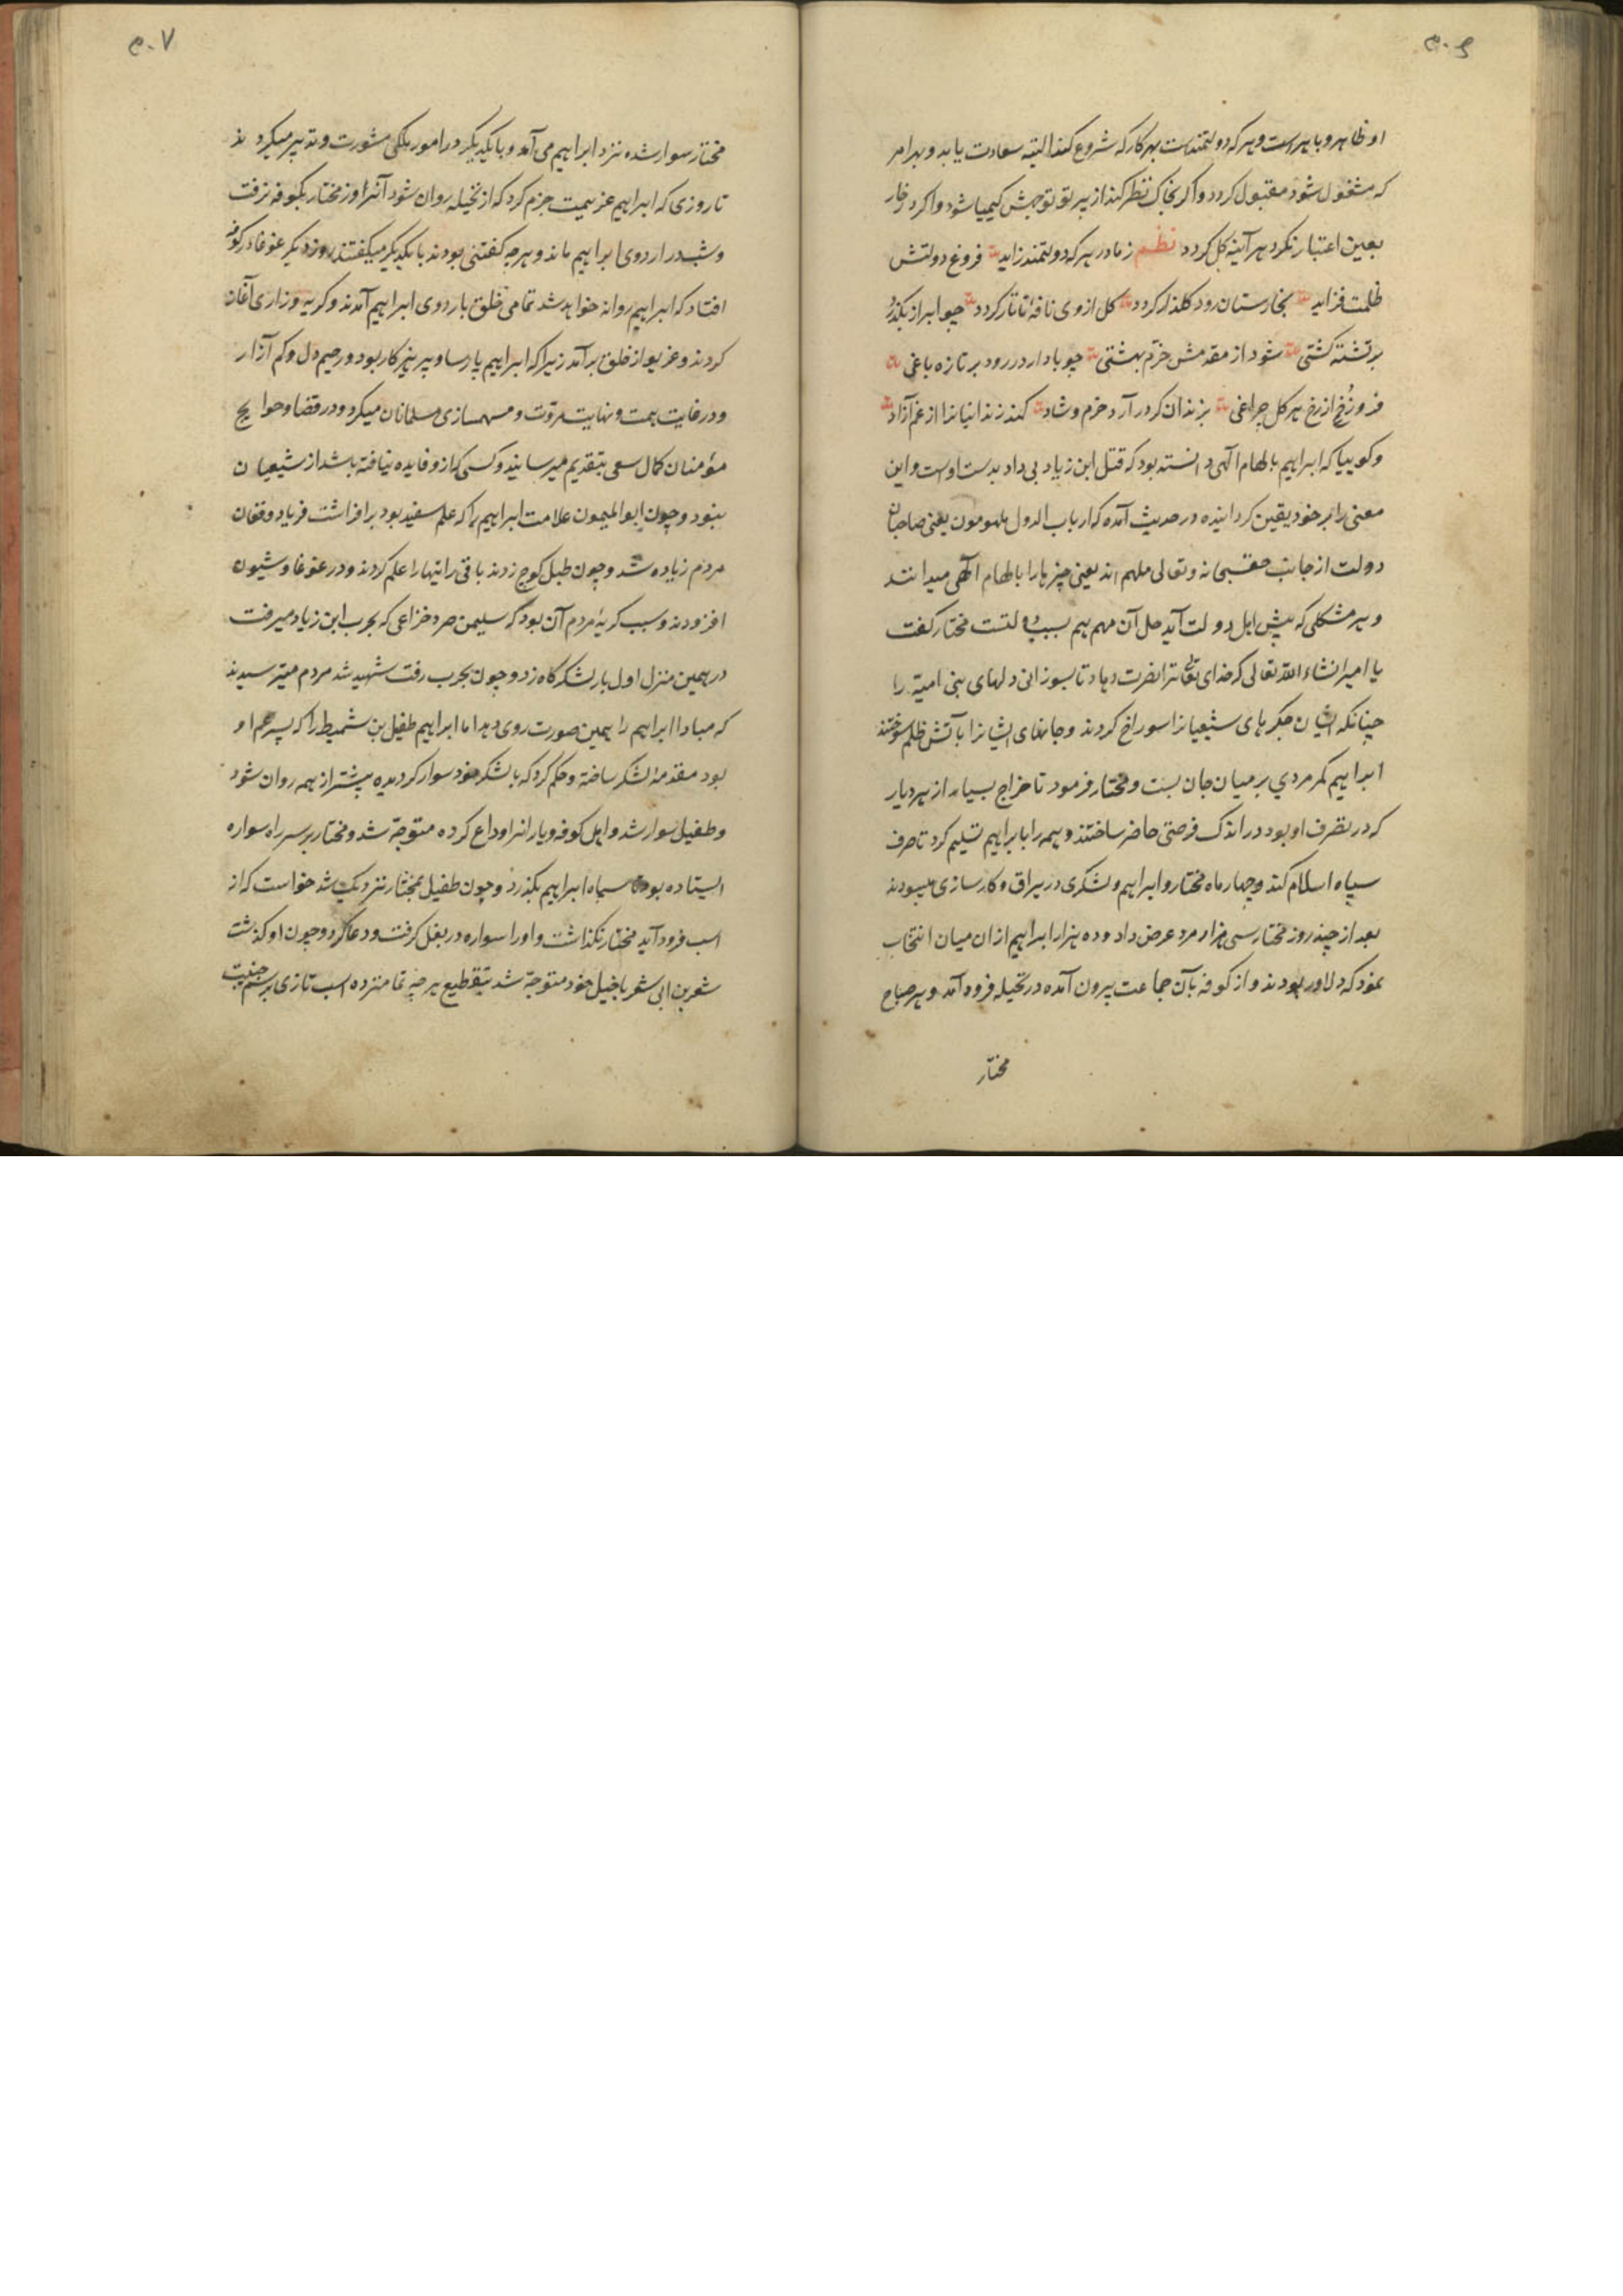 ۵۰۶
او ظاهر و باهر است و هر که دولتمندست بهر کار که شروع کند البته سعادت یابد و بهر امر
که مشغول شود مقبول کردد و اکر بخاک نظر کند از پرتو توجهش کیمیا شود و اکر در خار
بعین اعتبار نکرد هر آینه کل کردد نظم ز مادر هر که دولتمند زاید فروغ دولتش
ظلمت فزاید بخارستان رود کلذار کردد کل از وی نافهٔ تاتار کردد چو ابر از بکذرد
بر تشنه کشتی شود از مقدمش خرّم بهشتی چو باد ار در رود بر تازه باغی
فروزد از رخ هر کل چراغی بزندان کر در آرد خرم و شاد کند زندانیانرا از غم آزاد
و کوییا که ابراهیم بالهام الهی دانسته بود که قتل ابن زیاد بی داد بدست اوست و این
معنی را بر خود یقین کردانیده در حدیث آمده که ارباب الدول ملهومون یعنی صاحبان
دولت از جانب حق سبحانه و تعالی ملهم اند یعنی چیزها را بالهام الهی میدانند
و هر مشکلی که پیش اهل دولت آید حل آن مهم هم بسبب دولتست مختار کفت
یا امیر انشاء الله تعالی که خدای تعالی ترا نصرت دهاد تا بسوزانی دلهای بنی امیّه را
چنانکه ایشان جکرهای شیعیانرا سوراخ کردند و جانهای ایشانرا بآتش ظلم سوختند
ابراهیم کمر مردی بر میان جان بست و مختار فرمود تا خراج بسیار از هر دیار
که در تصرف او بود در اندک فرصتی حاضر ساختند و همه را بابراهیم تسلیم کرد تا صرف
سپاه اسلام کند و چهار ماه مختار و ابراهیم و لشکری در یراق و کارسازی میبودند
بعد از چند روز مختار سی هزار مرد عرض داد و ده هزار ابراهیم از ان میان انتخاب
نمود که دلاور بودند و از کوفه بآن جماعت بیرون آمده در نخیله فرود آمد و هر صباح
مختار
۵۰۷
مختار سوار شده نزد ابراهیم می آمد و با یکدیکر در امور ملکی مشورت و تدبیر میکردند
تا روزی که ابراهیم عزیمیت جزم کرد که از نخیله روان شود آنروز مختار بکوفه نرفت
و شب در اردوی ابراهیم ماند و هر چه کفتنی بودند با یکدیکر میکفتند روز دیکر غوغا در کوفه
افتاد که ابراهیم روانه خواهد شد تمامی خلق باردوی ابراهیم آمدند و کریه و زاری آغاز
کردند و غریو از خلق برآمد زیرا که ابراهیم پارسا و پرهیزکار بود و رحیم دل و کم آزار
و در غایت همت و نهایت مروّت و مهمسازی مسلمانان میکرد و در قضا و حوایج
مؤمنان کمال سعی بتقدیم میرسانید و کسی که ازو فایده نیافته باشد از شیعیان
نبود و چون ابوالمیمون علامت ابراهیم را که علم سفید بود برافراشت فریاد و فغان
مردم زیاده شد و چون طبل کوچ زدند باقی رایتها را علم کردند و در غوغا و شیون
افزودند و سبب کریهٔ مردم آن بود که سلیمن صرد خزاعی که بحرب ابن زیاد میرفت
در همین منزل اول بار لشکرکاه زد و چون بحرب رفت شهید شد مردم میترسیدند
که مبادا ابراهیم را همین صورت روی دهد اما ابراهیم طفیل بن شمیط را که پسر عم او
بود مقدمهٔ لشکر ساخته و حکم کرد که با لشکر خود سوار کردیده پیشتر از همه روان شود
و طفیل سوار شد و اهل کوفه و یارانرا وداع کرده متوجّه شد و مختار بر سر راه سواره
ایستاده بود تا سپاه ابراهیم بکذرد و چون طفیل بمختار نزدیک شد خواست که از
اسب فرود آید مختار نکذاشت و او را سواره در بغل کرفت و دعا کرد و چون او کذشت
شعر بن ابی شعر با خیل خود متوجّه شد بتقطیع هر چه تمامتر ده اسب تازی برسم جنیبت